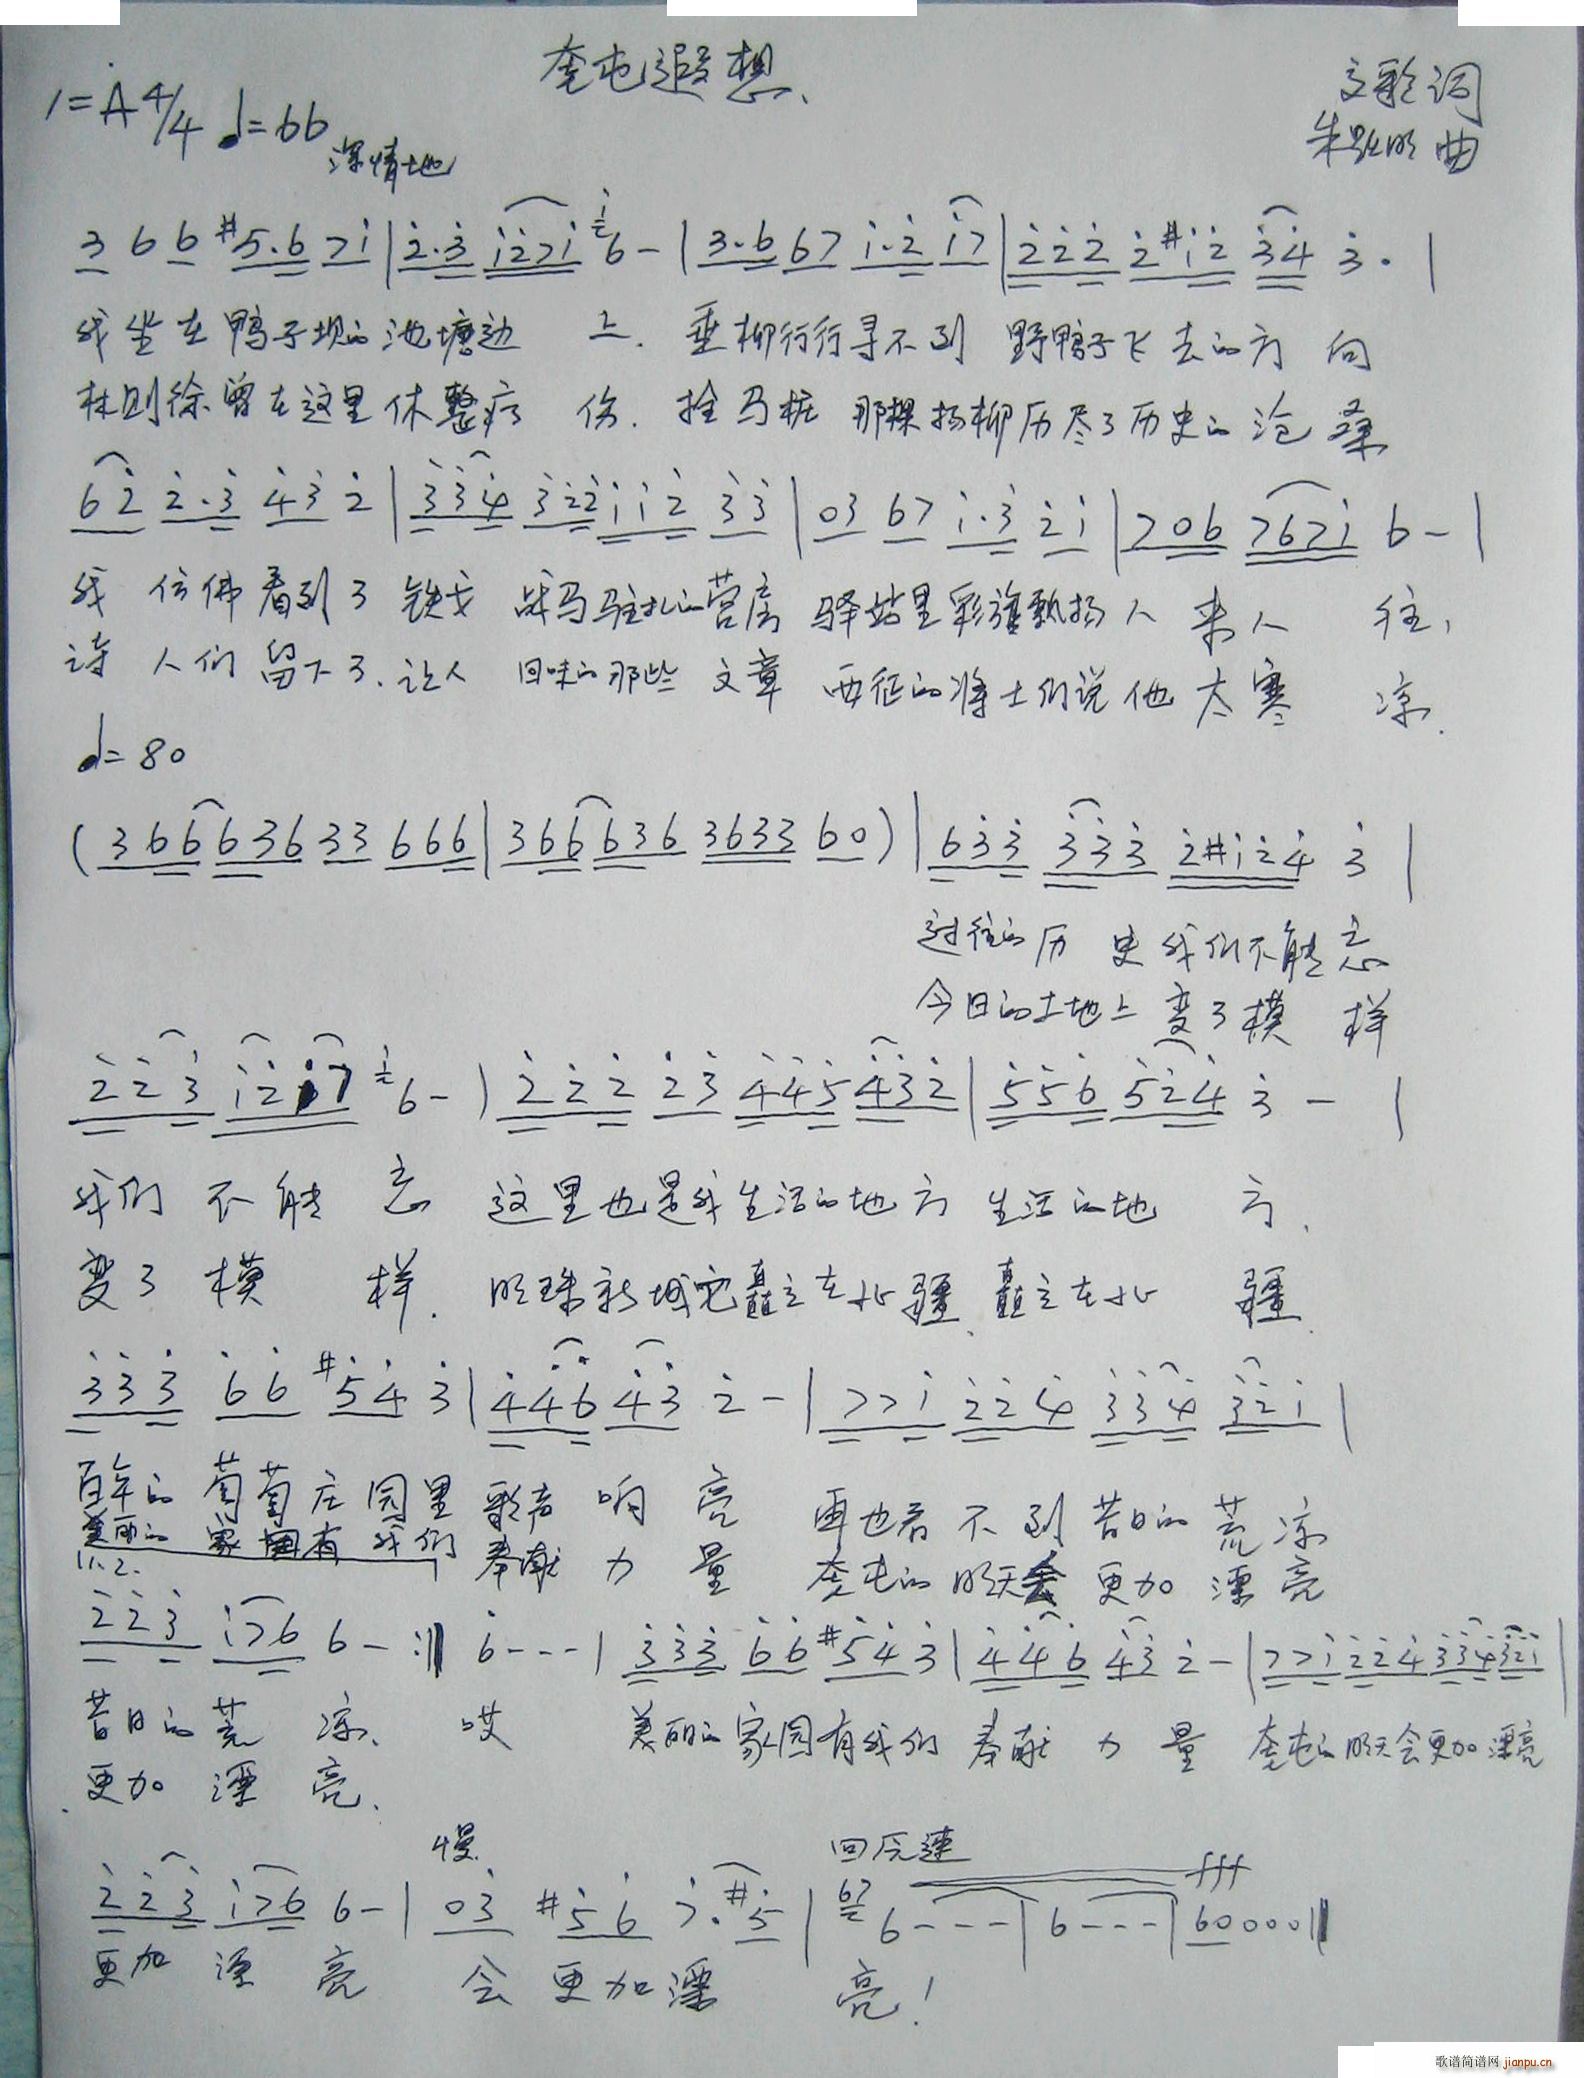 奎屯遐想、
1=A 4/4 ♩=66
深情地
文彩 词
朱 明 曲
3 6 6 #5.6 7i | 2.3 i27i i6 - | 3.6 67 i.2 i7 | 222 2#i2 34 3 . |
我坐在鸭子坝的池塘边 上. 垂柳行行寻不到 野鸭子飞去的方 向
林则徐曾在这里休整疗 伤. 拴马桩 那棵杨柳历尽了历史的沧 桑
62 2.3 43 2 | 334 322 ii2 33 | 03 67 i.3 2i | 706 767i 6 - |
我 仿佛看到了 铁戈 战马驻扎的营房 驿站里彩旗飘扬人 来人 往,
诗 人们 留下了.让人 回味的那些 文章 西征的将士们说他太寒 凉.
♩=80
(366 636 33 666 | 366 636 3633 60) | 633 333 2#i24 3 |
过往的历 史我们不能忘
今日的土地上 变了模 样
223 i2i7 i6 - | 222 23 445 432 | 556 524 3 - |
我们 不能 忘 这里也是我生活的地方 生活的地 方.
变了模 样. 明珠新城它矗立在北疆.矗立在北 疆
333 66 #54 3 | 446 43 2 - | 77i 224 334 32i |
百年的 葡萄庄园里 歌声 响 亮 再也看 不 到 昔日的 荒 凉
美丽的 家园有 我们 奉献 力 量 奎屯的 明天会 更加 漂亮
11.2.
223 i76 6 - :‖ 6 - - - | 333 66 #54 3 | 446 43 2 - | 77i 224 334 32i |
昔日的荒 凉、 哎 美丽的家园有我们 奉献 力 量 奎屯的明天会更加漂亮
更加 漂 亮.
慢 回原速 fff
223 i76 6 - | 03 #56 7.#5 | 67 6 - - - | 6 - - - | 60000 ‖
更加 漂 亮 会 更加漂 亮!
歌谱简谱网 jianpu.cn